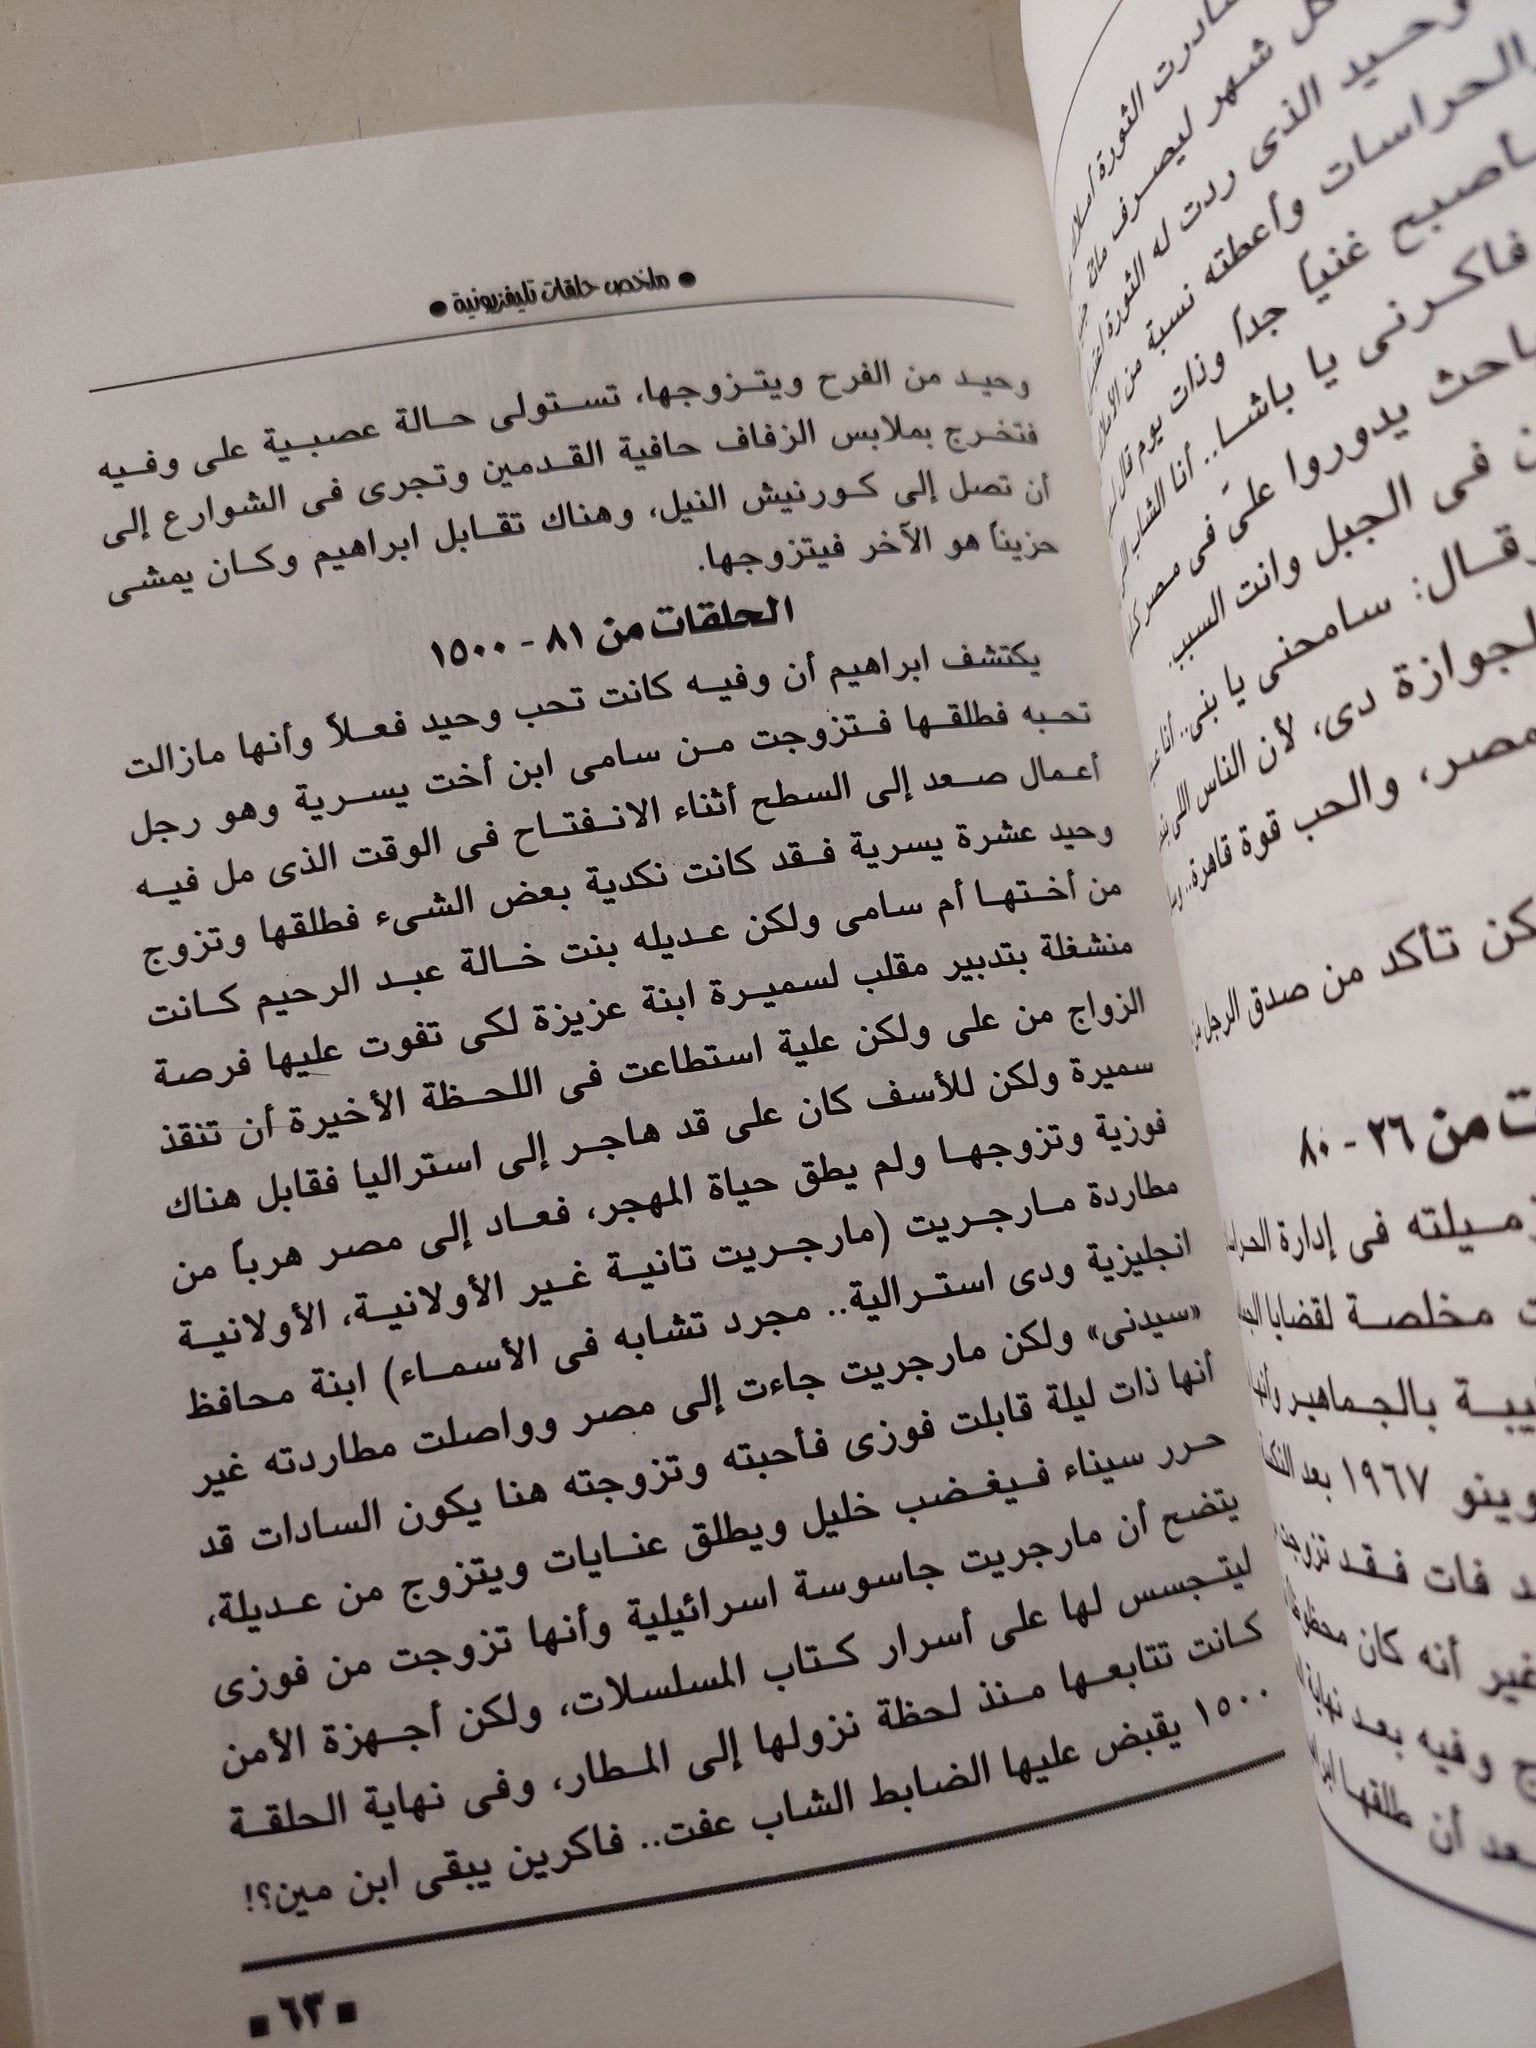 ● ملخص حلقات تليفزيونية ●
وحيد من الفرح ويتزوجها، تستولى حالة عصبية على وفيه
فتخرج بملابس الزفاف حافية القدمين وتجرى فى الشوارع إلى
أن تصل إلى كورنيش النيل، وهناك تقابل ابراهيم وكان يمشى
حزيناً هو الآخر فيتزوجها.
الحلقات من ٨١ - ١٥٠٠
يكتشف ابراهيم أن وفيه كانت تحب وحيد فعلاً وأنها مازالت
تحبه فطلقها فتزوجت من سامى ابن أخت يسرية وهو رجل
أعمال صعد إلى السطح أثناء الانفتاح فى الوقت الذى مل فيه
وحيد عشرة يسرية فقد كانت نكدية بعض الشىء فطلقها وتزوج
من أختها أم سامى ولكن عديله بنت خالة عبد الرحيم كانت
منشغلة بتدبير مقلب لسميرة ابنة عزيزة لكى تفوت عليها فرصة
الزواج من على ولكن علية استطاعت فى اللحظة الأخيرة أن تنقذ
سميرة ولكن للأسف كان على قد هاجر إلى استراليا فقابل هناك
فوزية وتزوجها ولم يطق حياة المهجر، فعاد إلى مصر هرباً من
مطاردة مارجريت (مارجريت تانية غير الأولانية، الأولانية
انجليزية ودى استرالية.. مجرد تشابه فى الأسماء) ابنة محافظ
«سيدنى» ولكن مارجريت جاءت إلى مصر وواصلت مطاردته غير
أنها ذات ليلة قابلت فوزى فأحبته وتزوجته هنا يكون السادات قد
حرر سيناء فيغضب خليل ويطلق عنايات ويتزوج من عديلة،
يتضح أن مارجريت جاسوسة اسرائيلية وأنها تزوجت من فوزى
ليتجسس لها على أسرار كتاب المسلسلات، ولكن أجهزة الأمن
كانت تتابعها منذ لحظة نزولها إلى المطار، وفى نهاية الحلقة
١٥٠٠ يقبض عليها الضابط الشاب عفت.. فاكرين يبقى ابن مين؟!
■ ٦٣ ■
صادرت الثورة
كل شهر ليصرف
وحيد الذى ردت له الثورة
الحراسات وأعطته نسبة من
غنياً جداً وذات يوم قال
فاكرنى يا باشا.. أنا الشاب
يدوروا علىّ فى مصر
فى الجبل وانت السبب.
وقال: سامحنى يا بنى..
الجوازة دى، لأن الناس اللى
مصر، والحب قوة قاهرة..
تأكد من صدق الرجل
من ٢٦ - ٨٠
زميلته فى إدارة
مخلصة لقضايا
بالجماهير
١٩٦٧ بعد
فات فقد
غير أنه كان
وفيه بعد نهاية
بعد أن طلقها